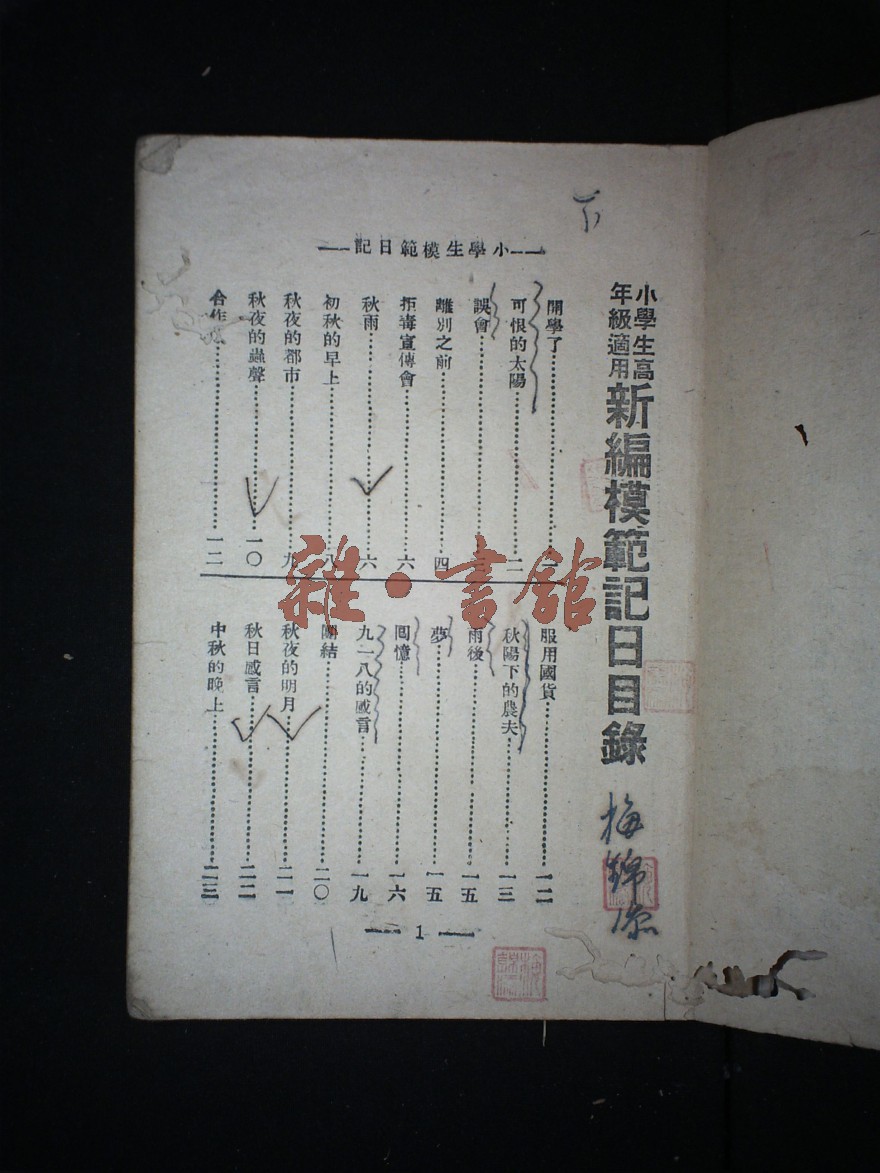 小學生模範日記
小學生高
年級適用
新編模範記日目錄
開學了
可恨的太陽 二
誤會
離別之前 四
拒毒宣傳會 六
秋雨 六
初秋的早上 八
秋夜的都市 九
秋夜的蟲聲 一〇
合作 一二
服用國貨 一二
秋陽下的農夫 一三
雨後 一五
夢 一五
回憶 一六
九一八的感言 一九
團結 二〇
秋夜的明月 二一
秋日感言 二二
中秋的晚上 二三
1
梅錦
雜·書館